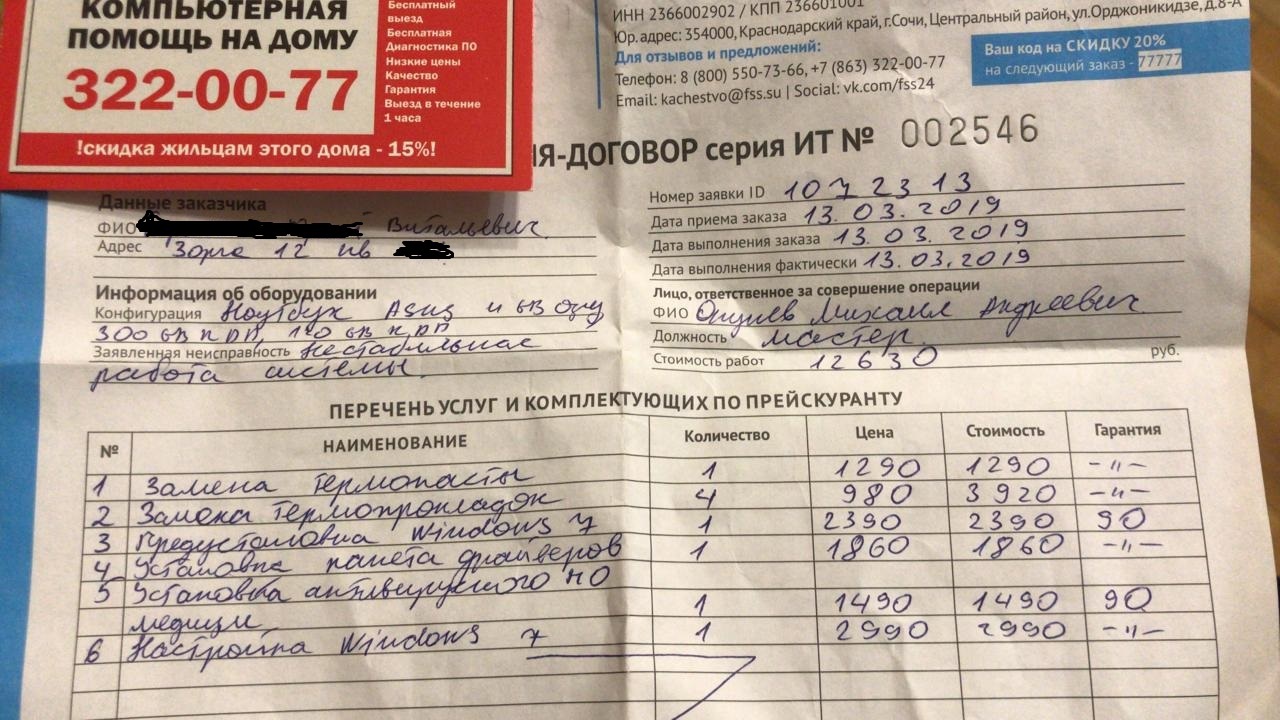 КОМПЬЮТЕРНАЯ
ПОМОЩЬ НА ДОМУ
322-00-77
Бесплатный
выезд
Бесплатная
Диагностика ПО
Низкие цены
Качество
Гарантия
Выезд в течение
1 часа
!скидка жильцам этого дома - 15%!
ИНН 2366002902 / КПП 236601001
Юр. адрес: 354000, Краснодарский край, г.Сочи, Центральный район, ул.Орджоникидзе, д.8-А
Для отзывов и предложений:
Телефон: 8 (800) 550-73-66, +7 (863) 322-00-77
Email: kachestvo@fss.su | Social: vk.com/fss24
Ваш код на СКИДКУ 20%
на следующий заказ - 77777
Я-ДОГОВОР серия ИТ № 002546
Данные заказчика
ФИО Витальевич
Адрес Зорге 12 кв
Информация об оборудовании
Конфигурация Ноутбук Asus 4 GB озу
300 GB
Заявленная неисправность Нестабильная
работа системы.
Номер заявки ID 1072313
Дата приема заказа 13.03.2019
Дата выполнения заказа 13.03.2019
Дата выполнения фактически 13.03.2019
Лицо, ответственное за совершение операции
ФИО Михаил Андреевич
Должность мастер
Стоимость работ 12630 руб.
ПЕРЕЧЕНЬ УСЛУГ И КОМПЛЕКТУЮЩИХ ПО ПРЕЙСКУРАНТУ
№ НАИМЕНОВАНИЕ Количество Цена Стоимость Гарантия
1 Замена термопасты 1 1290 1290 -"-
2 Замена термопрокладок 4 980 3920 -"-
3 Предустановка Windows 7 1 2390 2390 90
4 Установка пакета драйверов 1 1860 1860 -"-
5 Установка антивирусного ПО
медиум 1 1490 1490 90
6 Настройка Windows 7 1 2990 2990 -"-